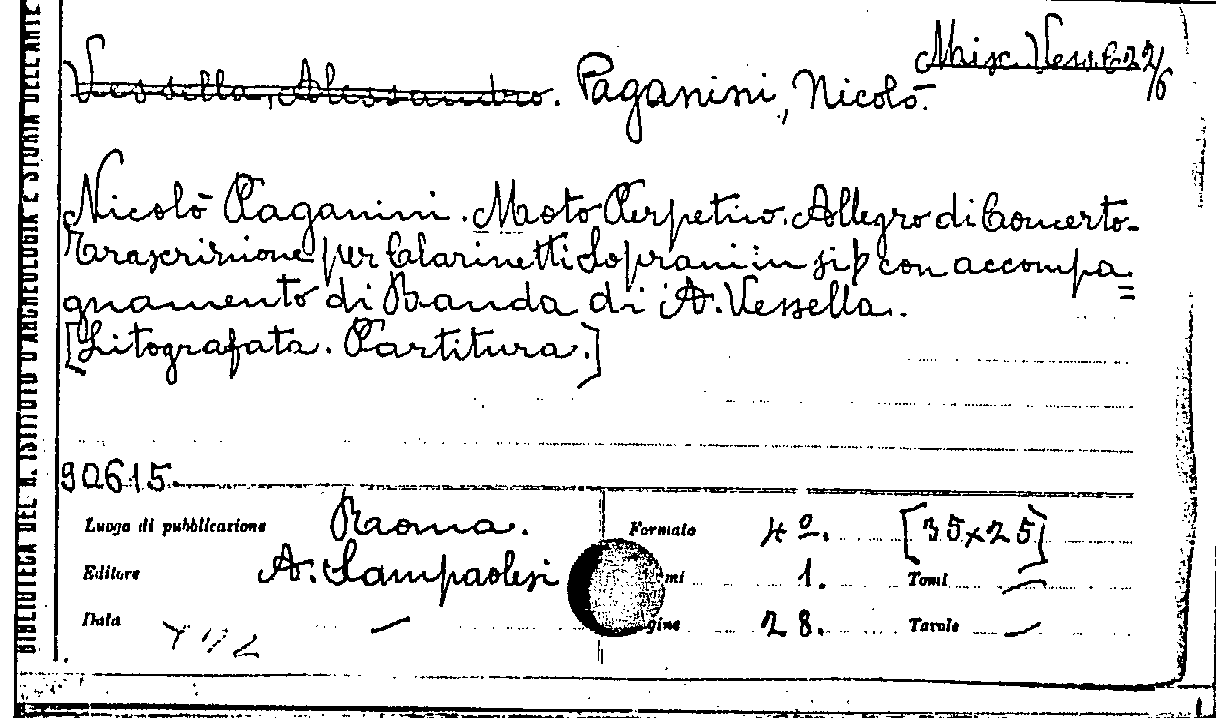 BIBLIOTECA DEL R. ISTITUTO D'ARCHEOLOGIA E STORIA DELL'ARTE
Misc. Vess. C 22/6
Vessella, Alessandro. Paganini, Nicolò.
Nicolò Paganini. Moto Perpetuo. Allegro di Concerto.
Trascrizione per Clarinetti Soprani in si♭ con accompa=
gnamento di Banda di A. Vessella.
[Litografata. Partitura.]
90615.
Luogo di pubblicazione Roma. Formato 4º. [35x25]
Editore A. Sampaolesi 1. Tomi —
Data — 28. Tavole —